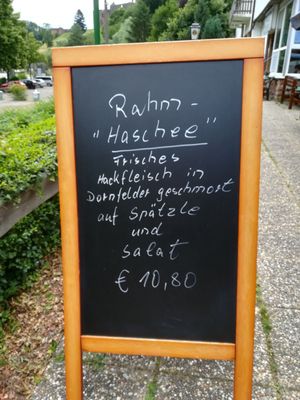 Rahm-
"Haschee"
Frisches
Hackfleisch in
Dornfelder geschmort
auf Spätzle
und
Salat
€ 10,80